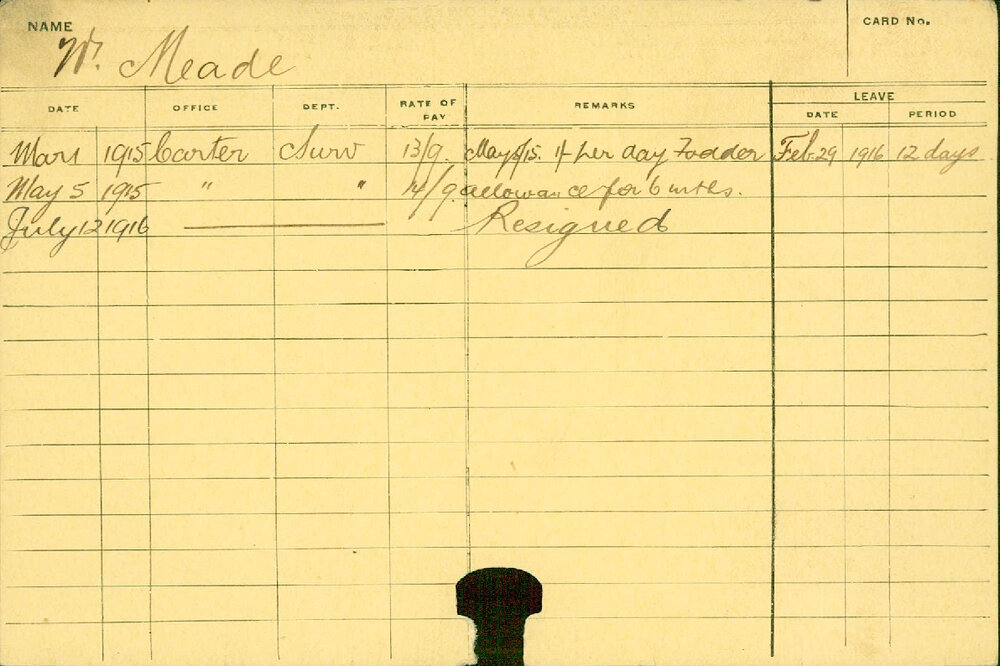 NAME
CARD No.
W. Meade
DATE OFFICE DEPT. RATE OF PAY REMARKS LEAVE
DATE PERIOD
Mar 1 1915 Carter Surv 13/9. May 5/15. 1/- per day Fodder Feb 29 1916 12 days
May 5 1915 " " 14/9. allowance for 6 mths.
July 12 1916 Resigned